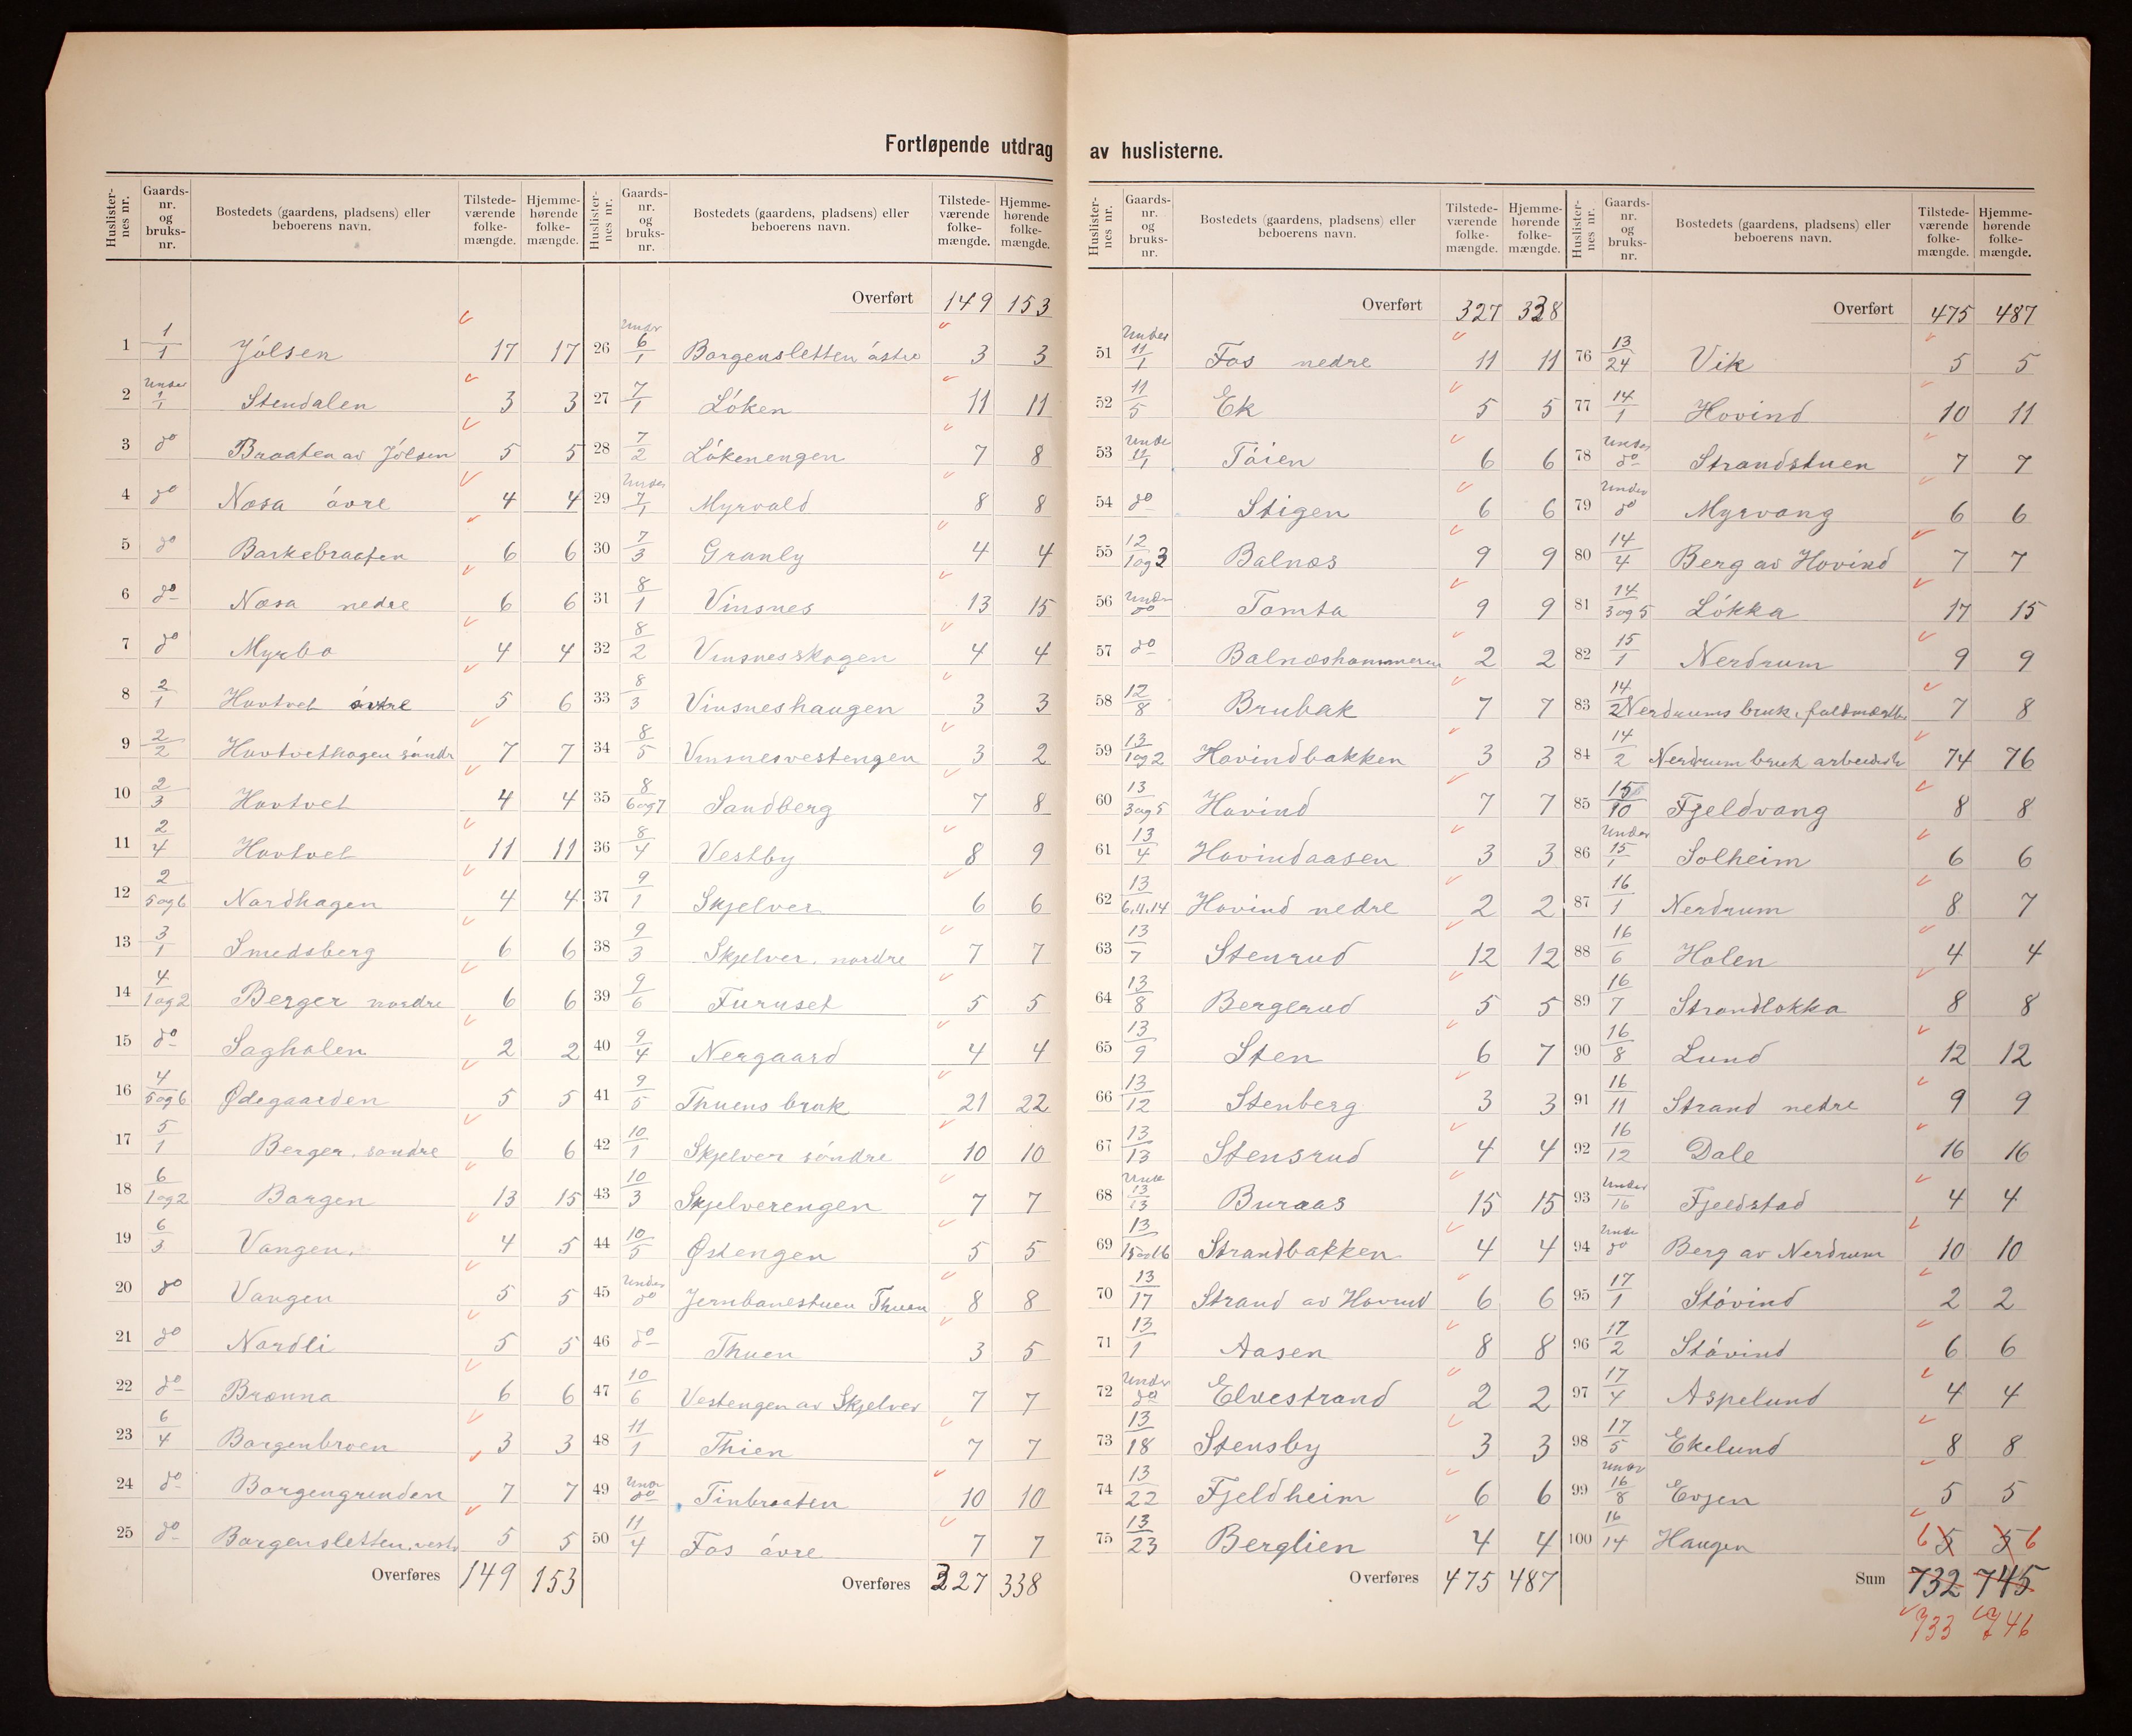 Fortløpende utdrag av huslisterne.
Huslister-nes nr. | Gaards-nr. og bruks-nr. | Bostedets (gaardens, pladsens) eller beboerens navn. | Tilstede-værende folke-mængde. | Hjemme-hørende folke-mængde.
1 1/1 Jølsen 17 17
2 Under 1/1 Stendalen 3 3
3 do Braaten av Jølsen 5 5
4 do Næsa øvre 4 4
5 do Barkebraaten 6 6
6 do Næsa nedre 6 6
7 do Myrbo 4 4
8 2/1 Hovtvet østre 5 6
9 2/2 Hovtvethagen søndr 7 7
10 2/3 Hovtvet 4 4
11 2/4 Hovtvet 11 11
12 2/5 og 6 Nordhagen 4 4
13 3/1 Smedsberg 6 6
14 4/1 og 2 Berger nordre 6 6
15 do Sagholen 2 2
16 4/5 og 6 Ødegaarden 5 5
17 5/1 Berger, søndre 6 6
18 6/1 og 2 Borgen 13 15
19 6/3 Vangen. 4 5
20 do Vangen 5 5
21 do Nordli 5 5
22 do Brænna 6 6
23 6/4 Borgenbroen 3 3
24 do Borgengrinden 7 7
25 do Borgensletten, vestr 5 5
Overføres 149 153
Huslister-nes nr. | Gaards-nr. og bruks-nr. | Bostedets (gaardens, pladsens) eller beboerens navn. | Tilstede-værende folke-mængde. | Hjemme-hørende folke-mængde.
Overført 149 153
26 Under 6/1 Borgensletten østre 3 3
27 7/1 Løken 11 11
28 7/2 Løkenengen 7 8
29 Under 7/1 Myrvold 8 8
30 7/3 Granly 4 4
31 8/1 Vinsnes 13 15
32 8/2 Vinsnesskogen 4 4
33 8/3 Vinsneshaugen 3 3
34 8/5 Vinsnesvestengen 3 2
35 8/6 og 7 Sandberg 7 8
36 8/4 Vestby 8 9
37 9/1 Skjelver 6 6
38 9/3 Skjelver, nordre 7 7
39 9/6 Furuset 5 5
40 9/4 Nergaard 4 4
41 9/5 Thuens bruk 21 22
42 10/1 Skjelver søndre 10 10
43 10/3 Skjelverengen 7 7
44 10/5 Østengen 5 5
45 Under do Jernbanestuen Thuen 8 8
46 do Thuen 3 5
47 10/6 Vestengen av Skjelver 7 7
48 11/1 Thien 7 7
49 Under do Tinbraaten 10 10
50 11/4 Fos øvre 7 7
Overføres 327 338
Huslister-nes nr. | Gaards-nr. og bruks-nr. | Bostedets (gaardens, pladsens) eller beboerens navn. | Tilstede-værende folke-mængde. | Hjemme-hørende folke-mængde.
Overført 327 338
51 Under 11/1 Fos nedre 11 11
52 11/5 Ek 5 5
53 Unde 11/1 Tøien 6 6
54 do Stigen 6 6
55 12/1 og 3 Balnes 9 9
56 Under do Tomta 9 9
57 do Balneshammeren 2 2
58 12/8 Brubak 7 7
59 13/1 og 2 Hovindbakken 3 3
60 13/3 og 5 Hovind 7 7
61 13/4 Hovindaasen 3 3
62 13/6.11.14 Hovind nedre 2 2
63 13/7 Stenrud 12 12
64 13/8 Bergerud 5 5
65 13/9 Sten 6 7
66 13/12 Stenberg 3 3
67 13/13 Stensrud 4 4
68 Unde 13/13 Buraas 15 15
69 13/15 og 16 Strandbakken 4 4
70 13/17 Strand av Hovind 6 6
71 13/1 Aasen 8 8
72 Under do Elvestrand 2 2
73 13/18 Stensby 3 3
74 13/22 Fjeldheim 6 6
75 13/23 Berglien 4 4
Overføres 475 487
Huslister-nes nr. | Gaards-nr. og bruks-nr. | Bostedets (gaardens, pladsens) eller beboerens navn. | Tilstede-værende folke-mængde. | Hjemme-hørende folke-mængde.
Overført 475 487
76 13/24 Vik 5 5
77 14/1 Hovind 10 11
78 Under do Strandstuen 7 7
79 Under do Myrvang 6 6
80 14/4 Berg av Hovind 7 7
81 14/3 og 5 Løkka 17 15
82 15/1 Nerdrum 9 9
83 14/2 Nerdrums bruk, 7 8
84 14/2 Nerdrum bruk 74 76
85 15/10 Fjeldvang 8 8
86 Under 15/1 Solheim 6 6
87 16/1 Nerdrum 8 7
88 16/6 Holen 4 4
89 16/7 Strandløkka 8 8
90 16/8 Lund 12 12
91 16/11 Strand nedre 9 9
92 16/12 Dale 16 16
93 Under 16 Fjeldstad 4 4
94 Unde do Berg av Nerdrum 10 10
95 17/1 Støvind 2 2
96 17/2 Støvind 6 6
97 17/4 Aspelund 4 4
98 17/5 Ekelund 8 8
99 Under 16/8 Evjen 5 5
100 16/14 Haugen 6 5 5 6
Sum 732 745
733 746